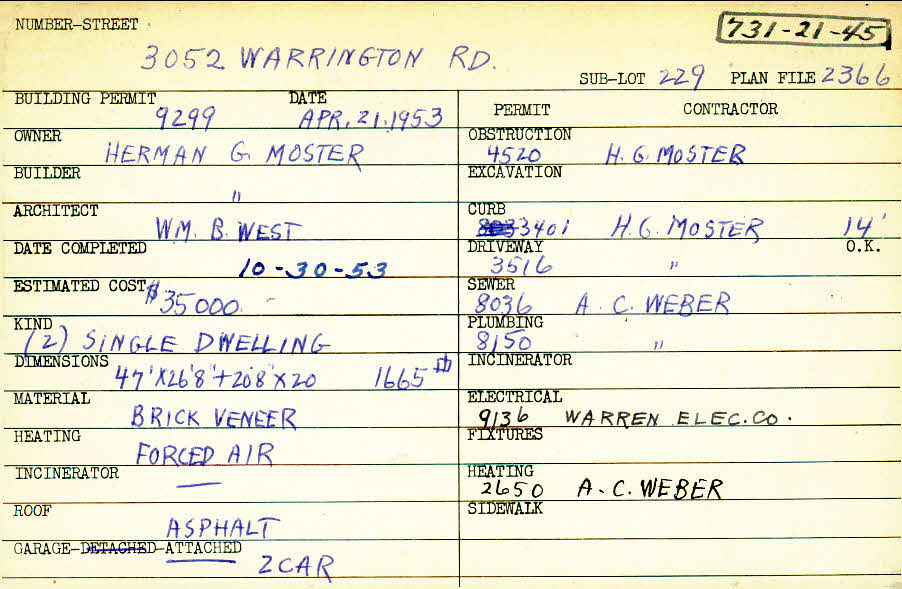 NUMBER-STREET
731-21-45
3052 WARRINGTON RD.
SUB-LOT 229 PLAN FILE 2366
BUILDING PERMIT DATE
9299 APR. 21. 1953
OWNER
HERMAN G. MOSTER
BUILDER
"
ARCHITECT
WM. B. WEST
DATE COMPLETED
10-30-53
ESTIMATED COST $35000.
KIND
(2) SINGLE DWELLING
DIMENSIONS
47'X26'8"+20'8"X20 1665
MATERIAL
BRICK VENEER
HEATING
FORCED AIR
INCINERATOR
—
ROOF
ASPHALT
GARAGE-DETACHED-ATTACHED
2 CAR
PERMIT CONTRACTOR
OBSTRUCTION
4520 H. G. MOSTER
EXCAVATION
CURB
3401 H. G. MOSTER 14'
DRIVEWAY O.K.
3516 "
SEWER
8036 A. C. WEBER
PLUMBING
8150 "
INCINERATOR
ELECTRICAL
9136 WARREN ELEC. CO.
FIXTURES
HEATING
2650 A. C. WEBER
SIDEWALK